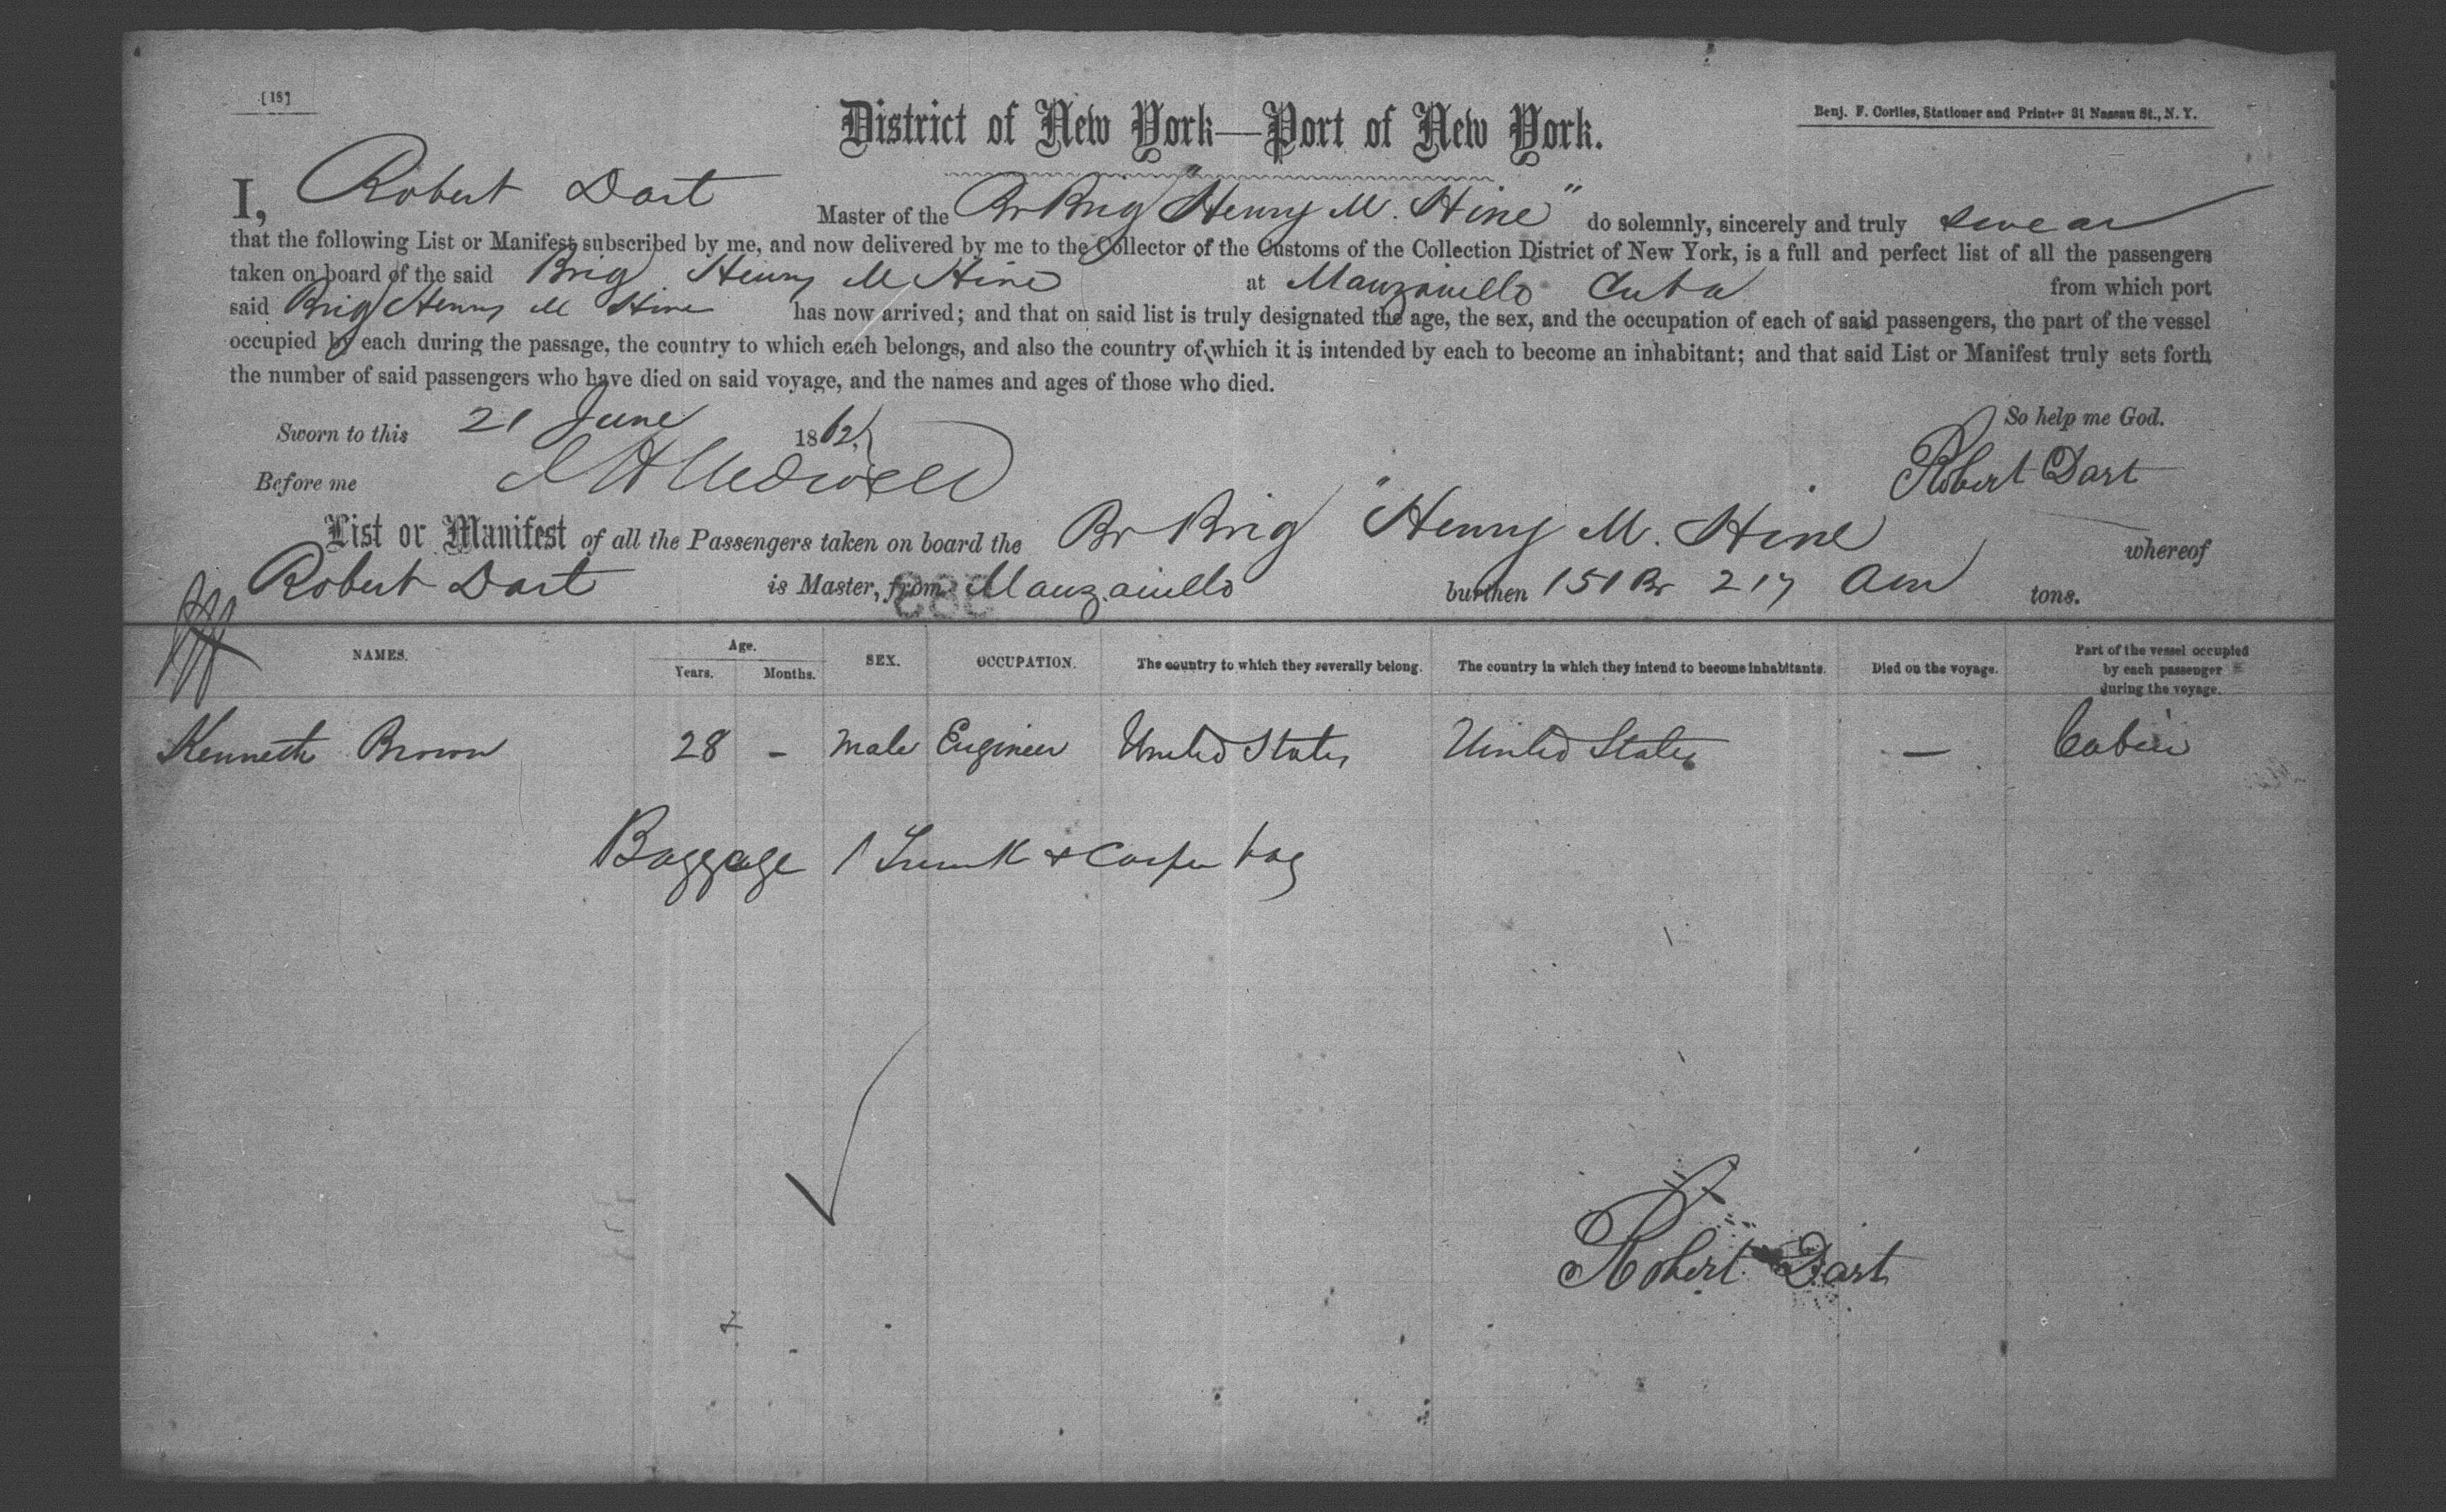 [18]
Benj. F. Corlies, Stationer and Printer 31 Nassau St., N. Y.
District of New York—Port of New York.
I, Robert Dart Master of the Br Brig "Henry M. Hine" do solemnly, sincerely and truly swear
that the following List or Manifest subscribed by me, and now delivered by me to the Collector of the Customs of the Collection District of New York, is a full and perfect list of all the passengers
taken on board of the said Brig Henry M Hine at Manzanillo Cuba from which port
said Brig Henry M Hine has now arrived; and that on said list is truly designated the age, the sex, and the occupation of each of said passengers, the part of the vessel
occupied by each during the passage, the country to which each belongs, and also the country of which it is intended by each to become an inhabitant; and that said List or Manifest truly sets forth
the number of said passengers who have died on said voyage, and the names and ages of those who died.
Sworn to this 21 June 1862, So help me God.
Before me Robert Dart
List or Manifest of all the Passengers taken on board the Br Brig "Henry M. Hine whereof
Robert Dart is Master, from Manzanillo burthen 151 Br 217 Am tons.
NAMES. Age. Years. Months. SEX. OCCUPATION. The country to which they severally belong. The country in which they intend to become inhabitants. Died on the voyage. Part of the vessel occupied by each passenger during the voyage.
Kenneth Brown 28 - Male Engineer United States United States — Cabin
Baggage 1 Trunk & Carpet bag
Robert Dart